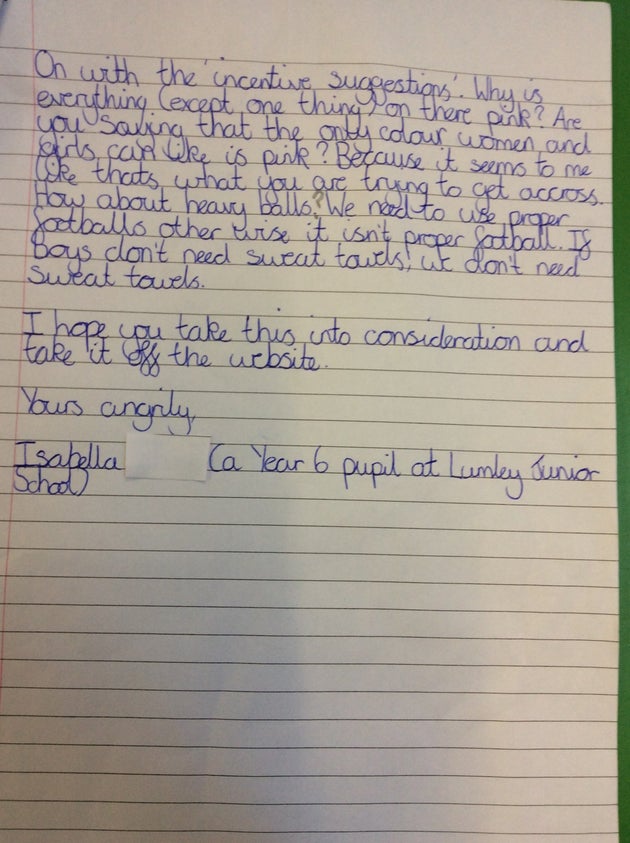 On with the 'incentive suggestions'. Why is
everything (except one thing) on there pink? Are
you saying that the only colour women and
girls can like is pink? Because it seems to me
like thats what you are trying to get accross.
How about heavy balls? We need to use proper
footballs other wise it isn't proper football. If
Boys don't need sweat towels, we don't need
sweat towels.
I hope you take this into consideration and
take it off the website.
Yours angrily,
Isabella (a Year 6 pupil at Lumley Junior
School)